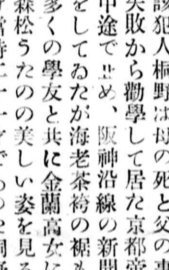 該犯人桐野は母の死と父の事
失敗から勸學して居た京都帝
中途で止め、阪神沿線の新聞
をしてゐたが海老茶袴の裾も
多くの學友と共に金蘭高女に
森松うたのの美しい姿を見る